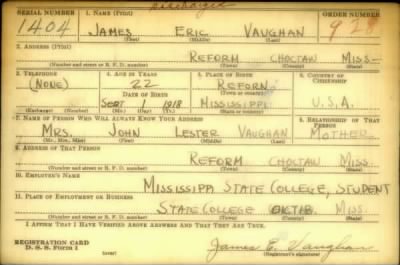 Discharged
SERIAL NUMBER 1. NAME (Print) ORDER NUMBER
1404 JAMES ERIC VAUGHAN
(First) (Middle) (Last)
2. ADDRESS (Print)
REFORM CHOCTAW MISS-
(Number and street or R. F. D. number) (Town) (County) (State)
3. TELEPHONE 4. AGE IN YEARS 5. PLACE OF BIRTH 6. COUNTRY OF CITIZENSHIP
(NONE) 22 REFORM
DATE OF BIRTH (Town or county)
SEPT 1 1918 MISSISSIPPI U.S.A.
(Exchange) (Number) (Mo.) (Day) (Yr.) (State or country)
7. NAME OF PERSON WHO WILL ALWAYS KNOW YOUR ADDRESS 8. RELATIONSHIP OF THAT PERSON
MRS. JOHN LESTER VAUGHAN MOTHER
(Mr., Mrs., Miss) (First) (Middle) (Last)
9. ADDRESS OF THAT PERSON
REFORM CHOCTAW MISS.
(Number and street or R. F. D. number) (Town) (County) (State)
10. EMPLOYER'S NAME
MISSISSIPPI STATE COLLEGE, STUDENT
11. PLACE OF EMPLOYMENT OR BUSINESS
STATE COLLEGE OKTIB. MISS.
(Number and street or R. F. D. number) (Town) (County) (State)
I AFFIRM THAT I HAVE VERIFIED ABOVE ANSWERS AND THAT THEY ARE TRUE.
REGISTRATION CARD
D. S. S. Form 1
James E. Vaughan
(Registrant's signature)